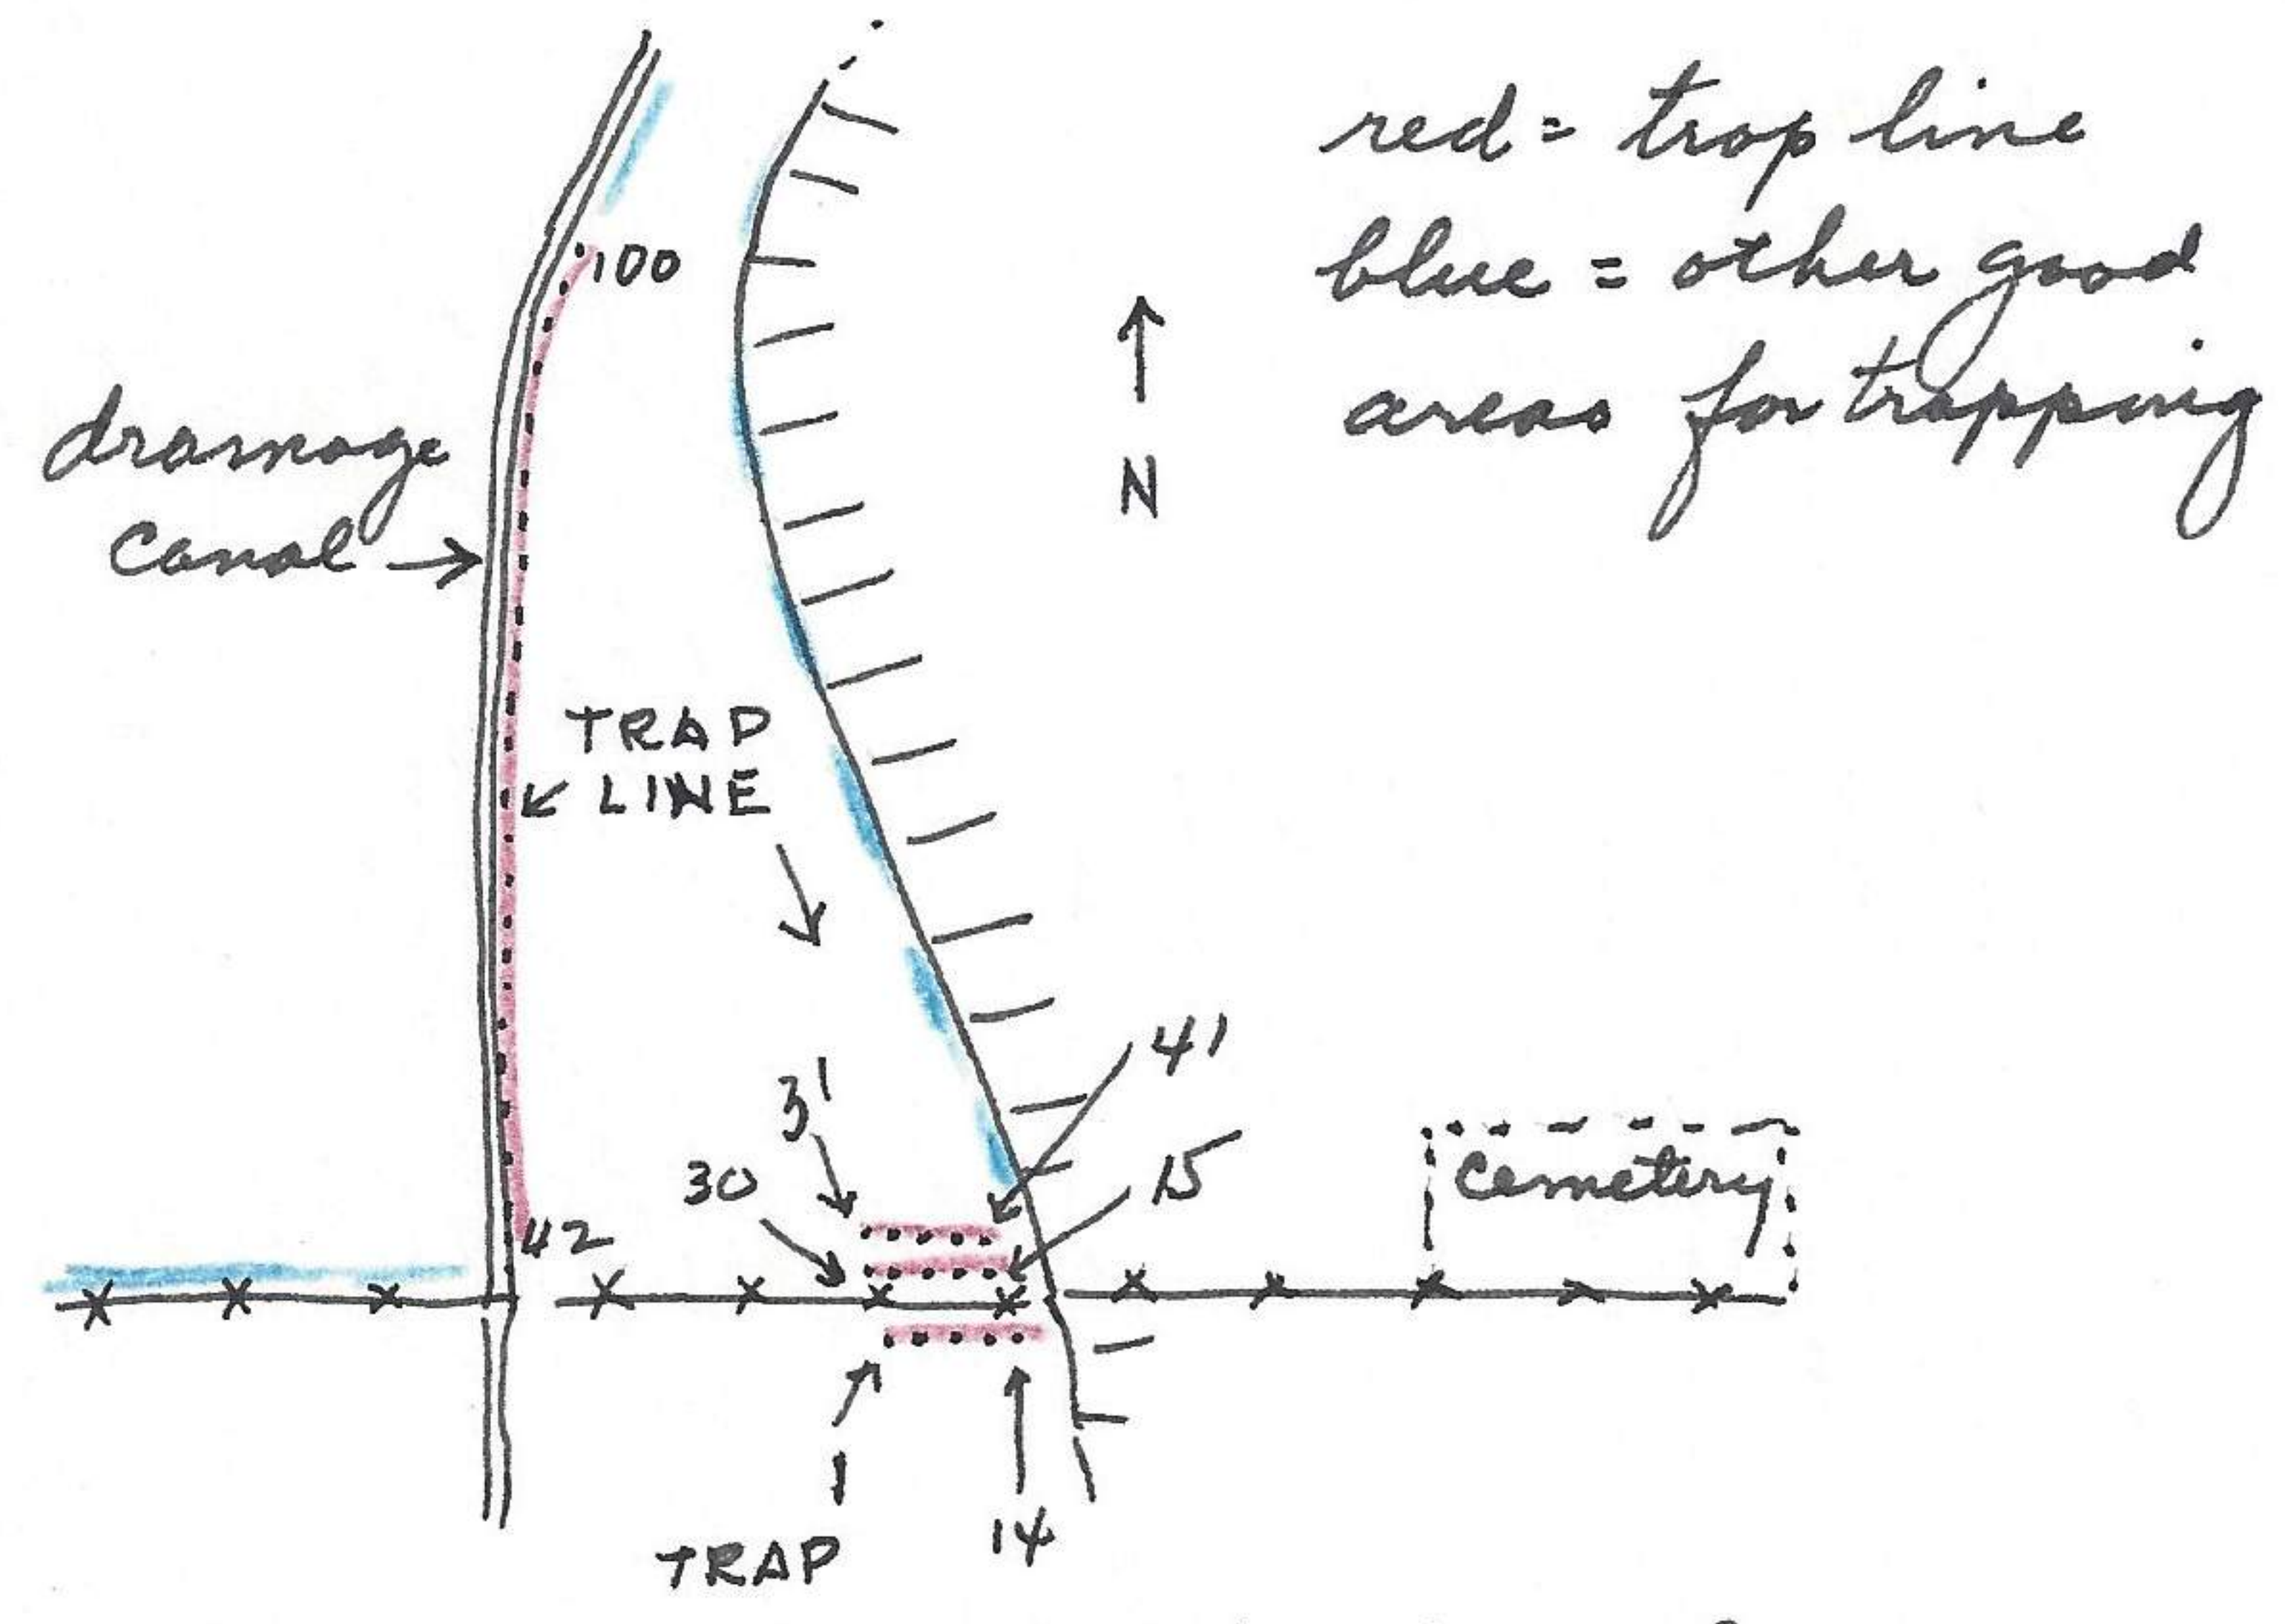 red = trap line
blue = other good
areas for trapping
100
N
drainage
canal
TRAP
LINE
41
31
15
30
cemetery
42
1
14
TRAP